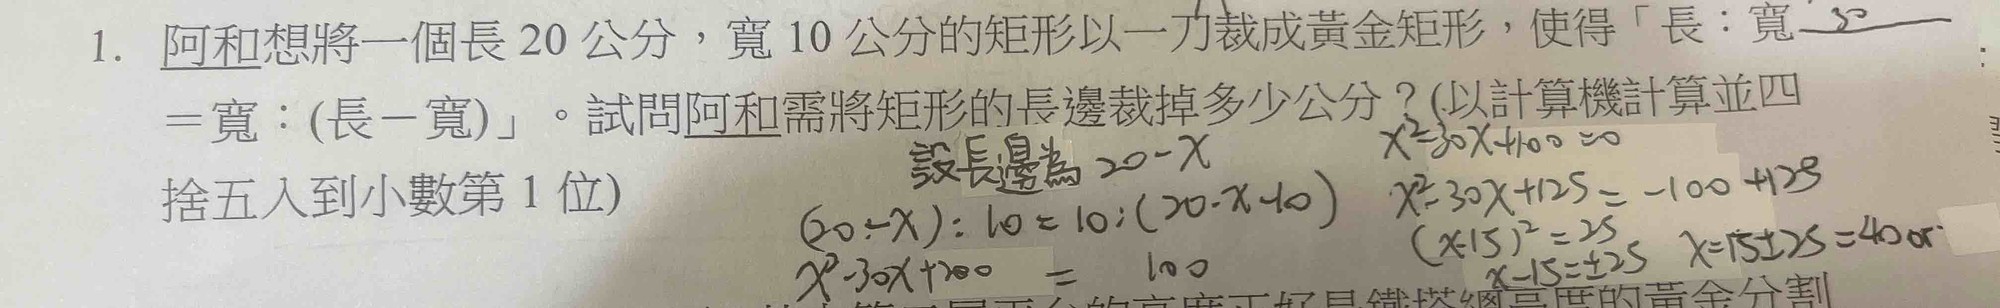 1. 阿和想將一個長 20 公分，寬 10 公分的矩形以一刀裁成黃金矩形，使得「長：寬
＝寬：(長－寬)」。試問阿和需將矩形的長邊裁掉多少公分？(以計算機計算並四
捨五入到小數第 1 位)
設長邊為 20-x
(20-x):10=10:(20-x-10)
x²-30x+200 = 100
x²-30x+100=0
x²-30x+125=-100+125
(x-15)²=25
x-15=±25 x=15±25=40 or